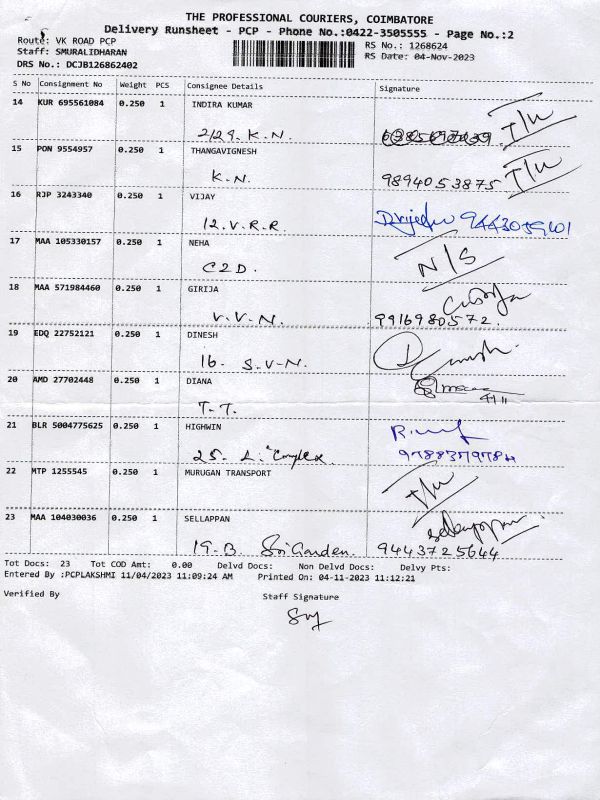 THE PROFESSIONAL COURIERS, COIMBATORE
Delivery Runsheet - PCP - Phone No.:0422-3505555 - Page No.:2
Route: VK ROAD PCP RS No.: 1268624
Staff: SMURALIDHARAN RS Date: 04-Nov-2023
DRS No.: DCJB126862402
S No Consignment No Weight PCS Consignee Details Signature
14 KUR 695561084 0.250 1 INDIRA KUMAR
2/29. K.N. T/W
15 PON 9554957 0.250 1 THANGAVIGNESH
K.N. 9894053875 T/W
16 RJP 3243340 0.250 1 VIJAY
12.V.R.R
17 MAA 105330157 0.250 1 NEHA
C2D. N/S
18 MAA 571984460 0.250 1 GIRIJA
V.V.N. 9916980572.
19 EDQ 22752121 0.250 1 DINESH
16. S.V.N.
20 AMD 27702448 0.250 1 DIANA
T.T.
21 BLR 5004775625 0.250 1 HIGHWIN
25. L. Complex
22 MTP 1255545 0.250 1 MURUGAN TRANSPORT
T/W
23 MAA 104030036 0.250 1 SELLAPPAN
19.B Sri Garden. 9443725644
Tot Docs: 23 Tot COD Amt: 0.00 Delvd Docs: Non Delvd Docs: Delvy Pts:
Entered By :PCPLAKSHMI 11/04/2023 11:09:24 AM Printed On: 04-11-2023 11:12:21
Verified By Staff Signature